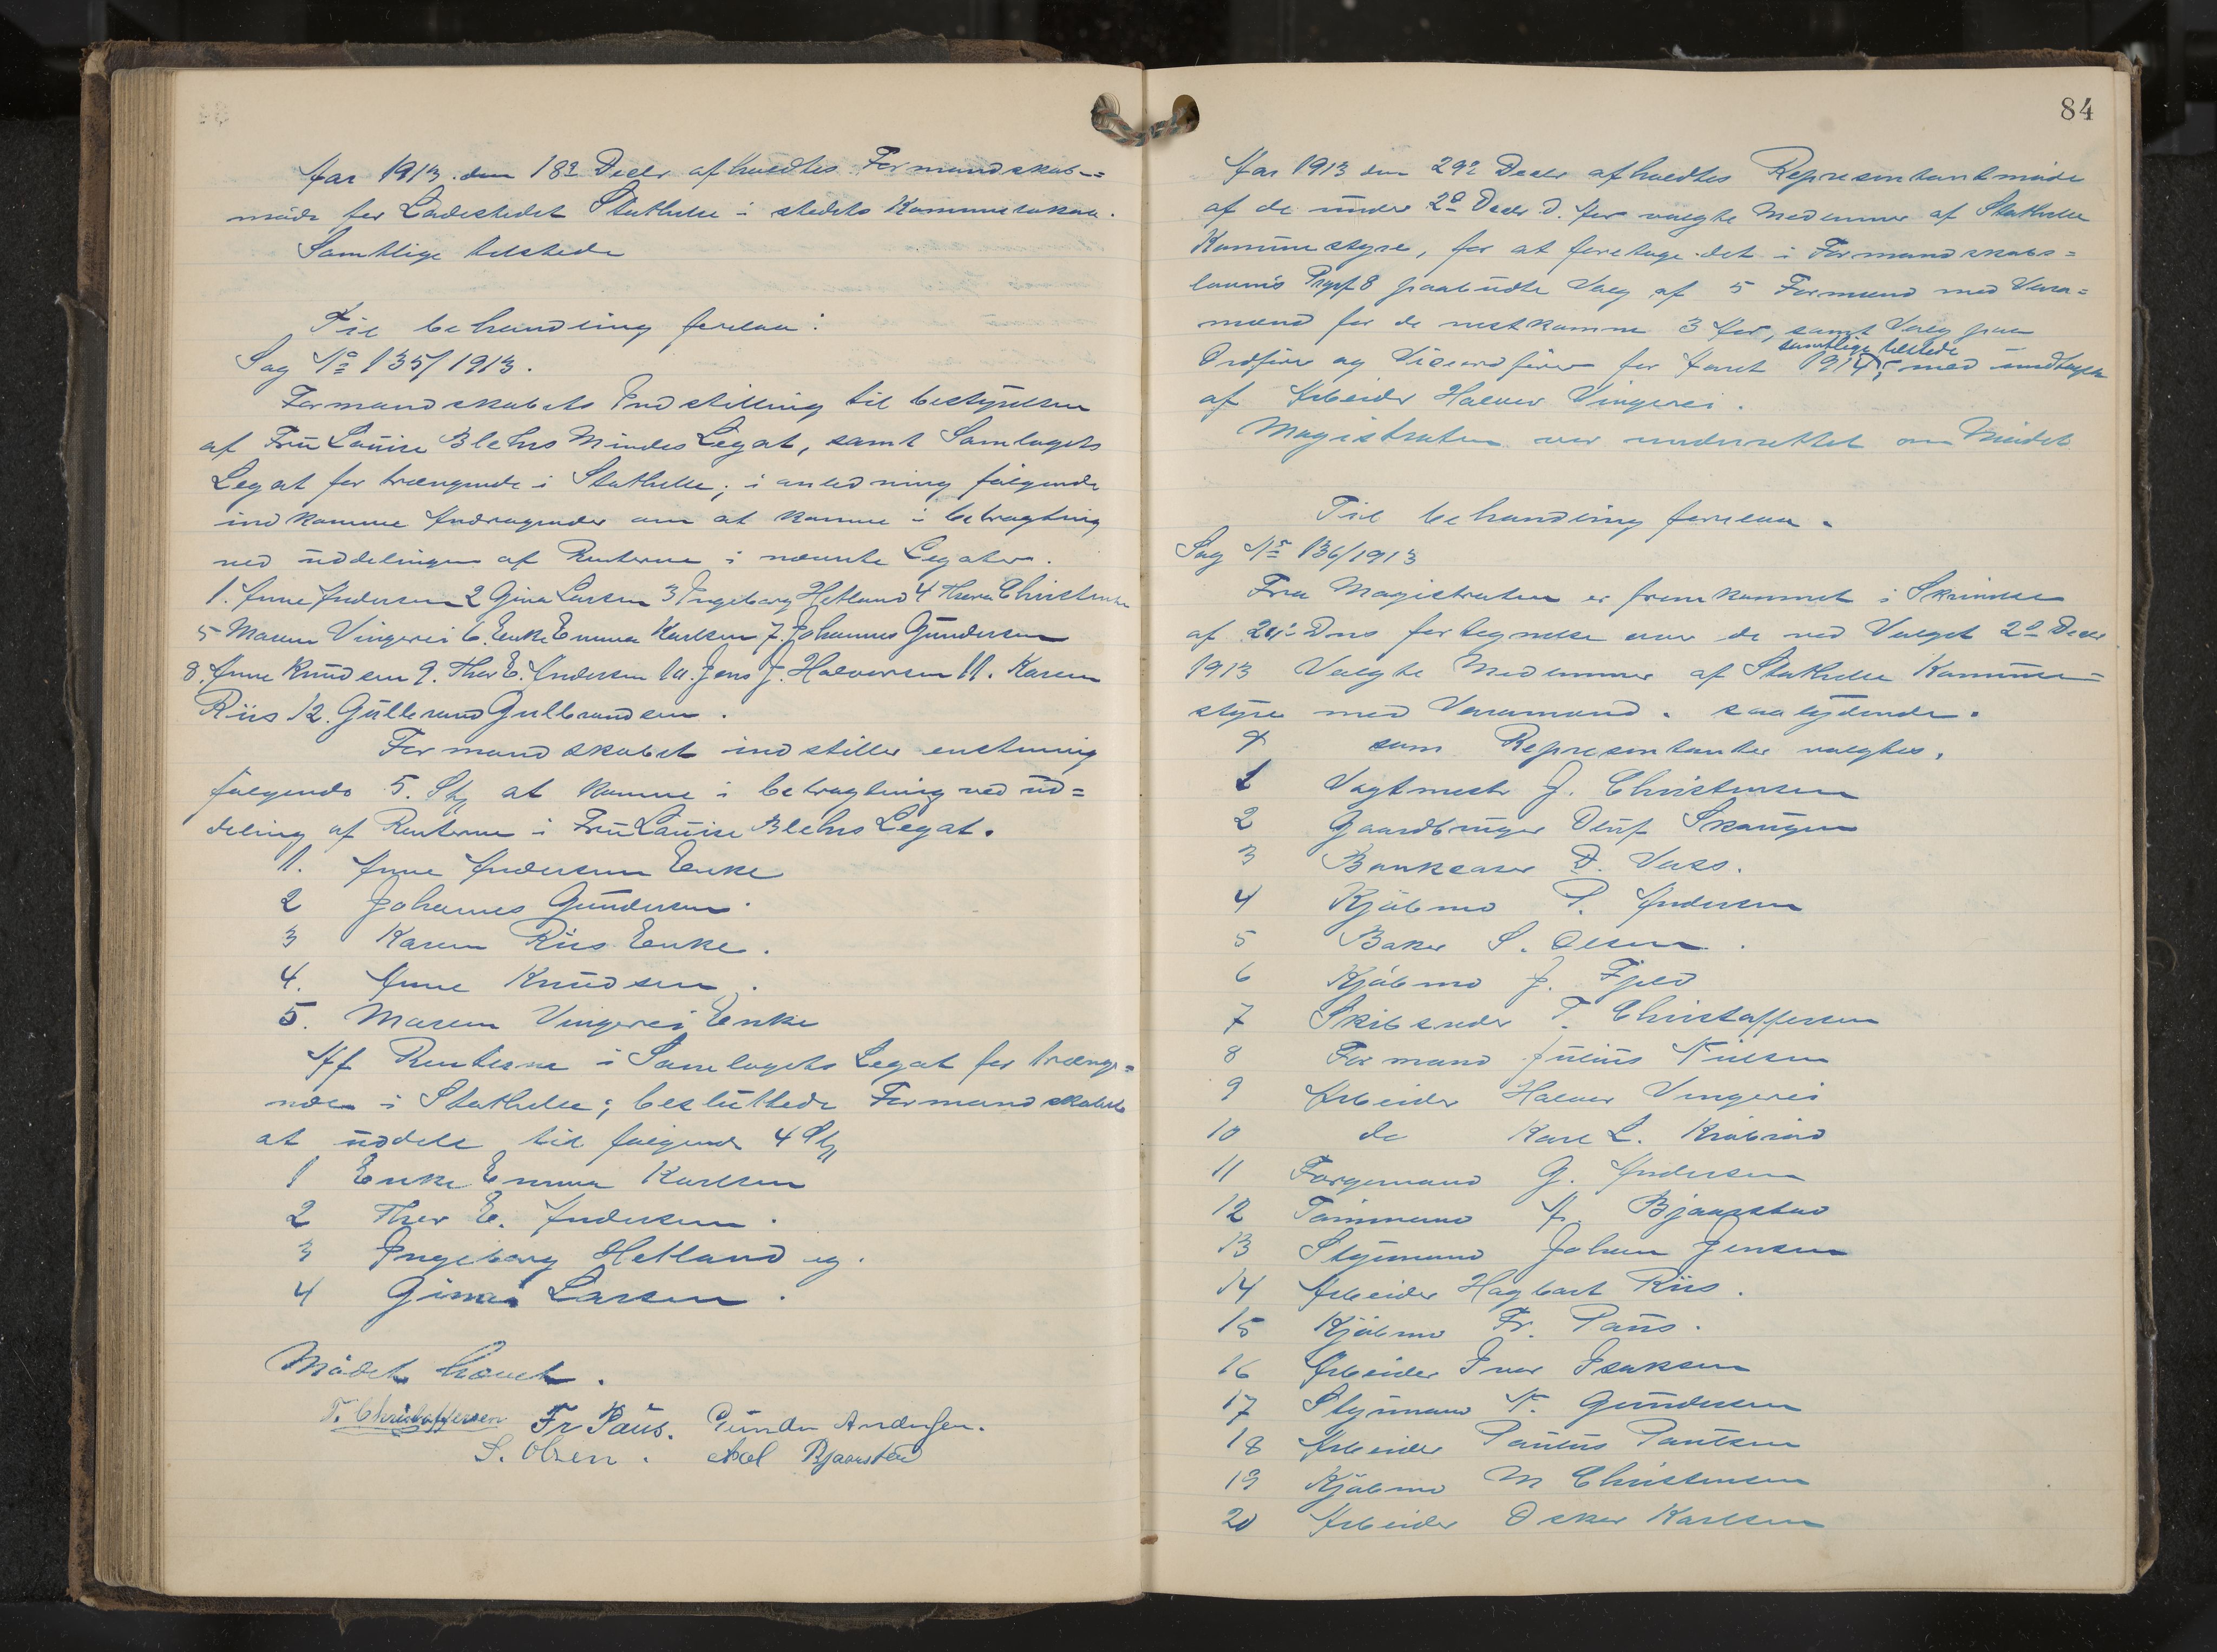 Aar 1913. den 18de Decbr afholdtes Formandskab-
møde for Ladestedet Stathelle i stedets Kommunelokale.
Samtlige tilstede
Til behandling forelaa:
Sag No 135/1913.
Formandskabets Indstilling til bestyrelsen
af Fru Louise Blehrs Mindes Legat, samt Samlagets
Legat for trængende i Stathelle; i anledning følgende
indkomne Andragender om at komme i betragtning
ved uddelingen af Renterne i nævnte Legater.
1. Anne Andersen 2 Gina Larsen 3 Ingeborg Hetland 4 Thora Christensen
5 Maren Vingerei 6. Enke Emma Karlsen 7. Johannes Gundersen
8. Anne Knudsen 9. Thor E. Andersen 10. Jens J. Halvorsen 11. Karen
Riis 12. Gulbrand Gulbrandsen.
Formandskabet indstiller enstemig
følgende 5. Stk at komme i betragtning ved ud=
deling af Renterne i Fru Louise Blehrs Legat.
1. Anne Andersen Enke
2 Johannes Gundersen.
3 Karen Riis Enke.
4. Anne Knudsen.
5. Maren Vingerei Enke
Af Renterne i Samlagets Legat for træng=
ende i Stathelle; besluttede Formandskabet
at uddele til følgende 4 Stk
1 Enke Emma Karlsen
2 Thor E. Andersen.
3 Ingeborg Hetland og.
4 Gina Larsen.
Mødet hævet.
T. Christoffersen Fr Paus. Gunder Andersen.
S. Olsen. Axel Bjaarstad
84
Aar 1913 den 29de Decbr afholdtes Representantmøde
af de under 2de Decbr d. Aar valgte Medlemmer af Stathelle
Kommunestyre, for at foretage det i Formandskabs=
lovens Prgrf 8 paabudte Valg af 5 Formænd med Vara=
mænd for de nestkomne 3 Aar, samt Valg paa
samtlige tilstede
Ordfører og Viceordfører for Aaret 1914, med undtagelse
af Arbeider Halvor Vingerei.
Magistraten var underrettet om Mødet
Til behandling forelaa.
Sag No 136/1913
Fra Magistraten er fremkommet i Skrivelse
af Dns fortegnelse over de ved Valget 2de Decbr
1913 Valgte Medlemmer af Stathelle Kommune=
styre med Varamænd. saalydende.
som Representanter valgtes.
1 Vagtmestr J. Christensen
2 Gaardbruger Oluf Skougen
3 Bankkaser D. Vass.
4 Kjøbmd P. Andersen
5 Baker S. Olsen.
6 Kjøbmd J. Fjeld
7 Skibsreder T. Christoffersen
8 Formand Julius Nilsen
9 Arbeider Halvor Vingerei
10 do Karl L. Krabrød
11 Færgemand G. Andersen
12 Tømmermd A. Bjaarstad
13 Styrmand Johan Jensen
14 Arbeider Hagbart Riis.
15 Kjøbmd Fr. Paus.
16 Arbeider Ivar Isaksen
17 Styrmand N. Gundersen
18 Arbeider Paulus Paulsen
19 Kjøbmd M Christensen
20 Arbeider Oskar Karlsen